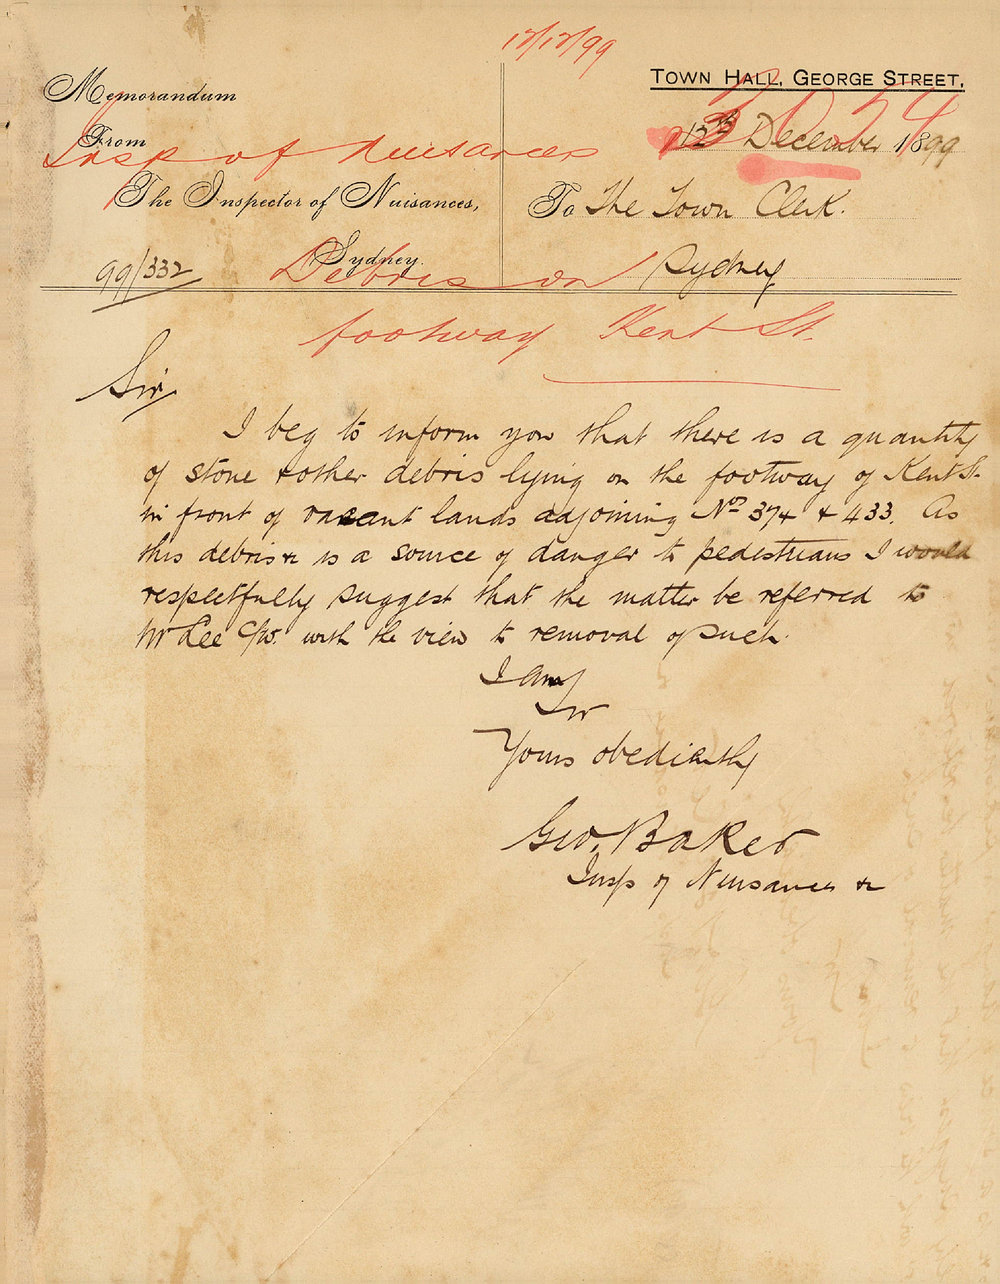 12/12/99
Memorandum
From
Insp of Nuisances
The Inspector of Nuisances,
Sydney.
99/332
TOWN HALL, GEORGE STREET,
12th December 1899
To The Town Clerk.
Sydney
Debris on
footway Kent St.
Sir,
I beg to inform you that there is a quantity
of stone & other debris lying on the footway of Kent St.
in front of vacant lands adjoining Nos 374 & 433. As
this debris &c is a source of danger to pedestrians I would
respectfully suggest that the matter be referred to
Mr Lee C/W. with the view to removal of such.
I am
Sir
Yours obediently
Geo. Baker
Insp of Nuisances &c